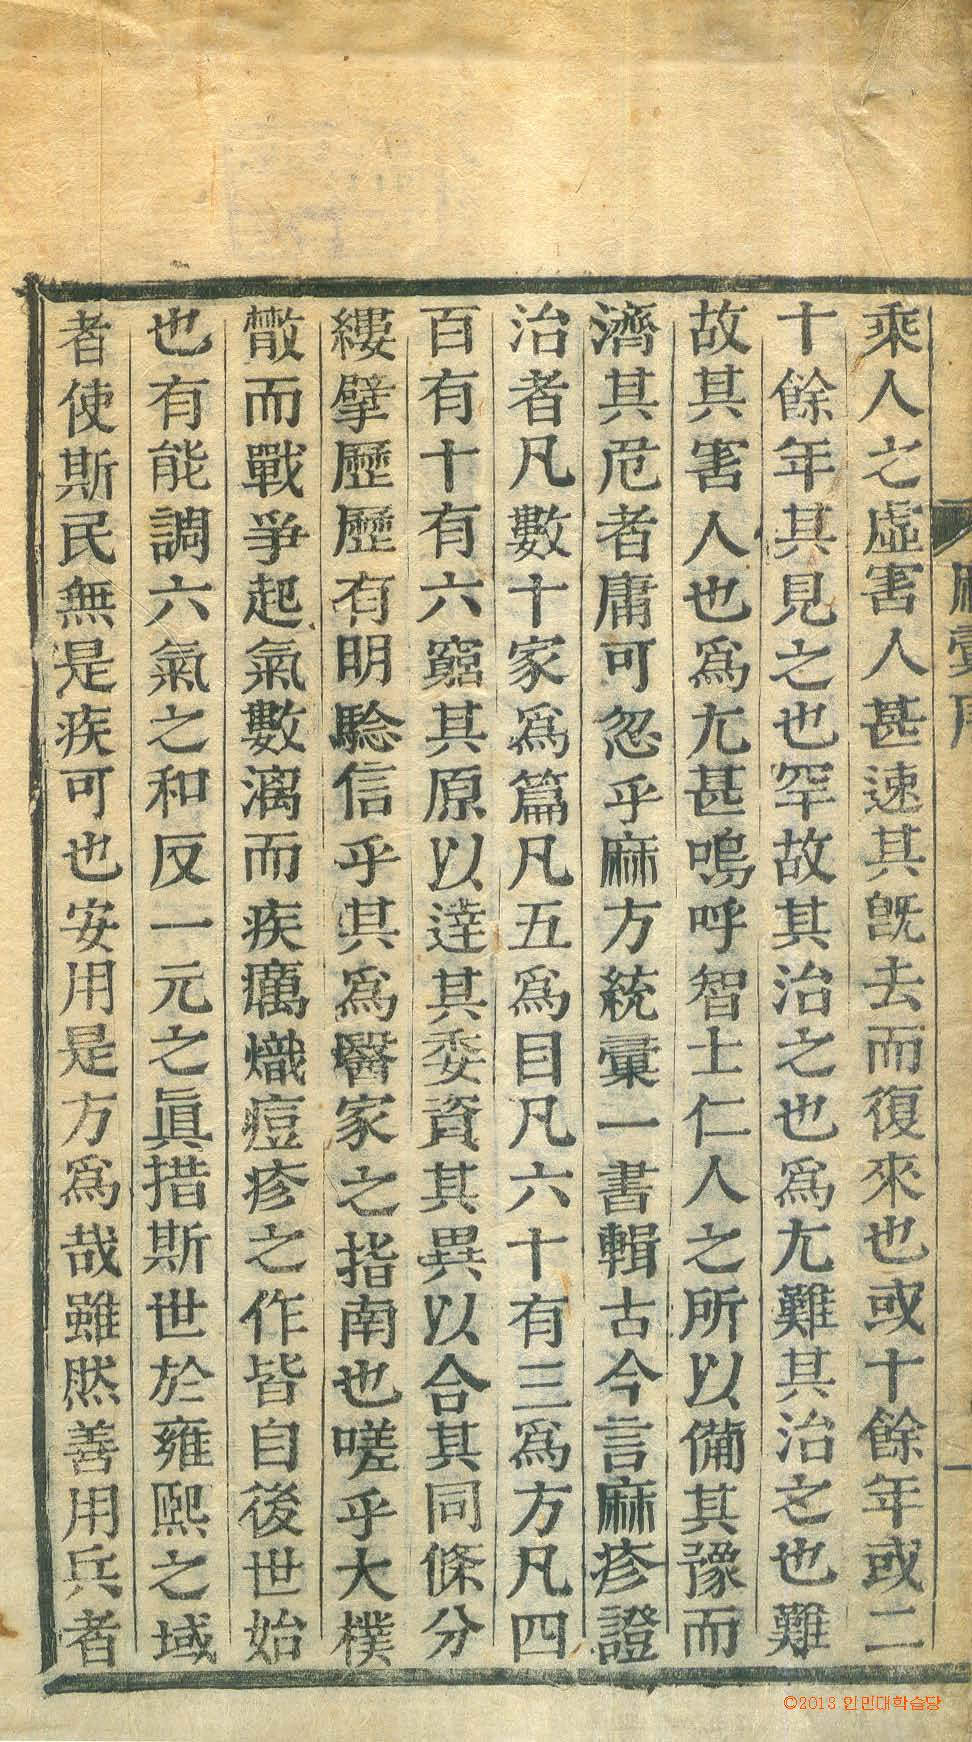 麻彙序
一
乘人之虛害人甚速其旣去而復來也或十餘年或二
十餘年其見之也罕故其治之也爲尤難其治之也難
故其害人也爲尤甚嗚呼智士仁人之所以備其豫而
濟其危者庸可忽乎麻方統彙一書輯古今言麻疹證
治者凡數十家爲篇凡五爲目凡六十有三爲方凡四
百有十有六窮其原以達其委資其異以合其同條分
縷擘歷歷有明騐信乎其爲醫家之指南也嗟乎大樸
散而戰爭起氣數漓而疾癘熾痘疹之作皆自後世始
也有能調六氣之和反一元之眞措斯世於雍熙之域
者使斯民無是疾可也安用是方爲哉雖然善用兵者
©2013 인민대학습당